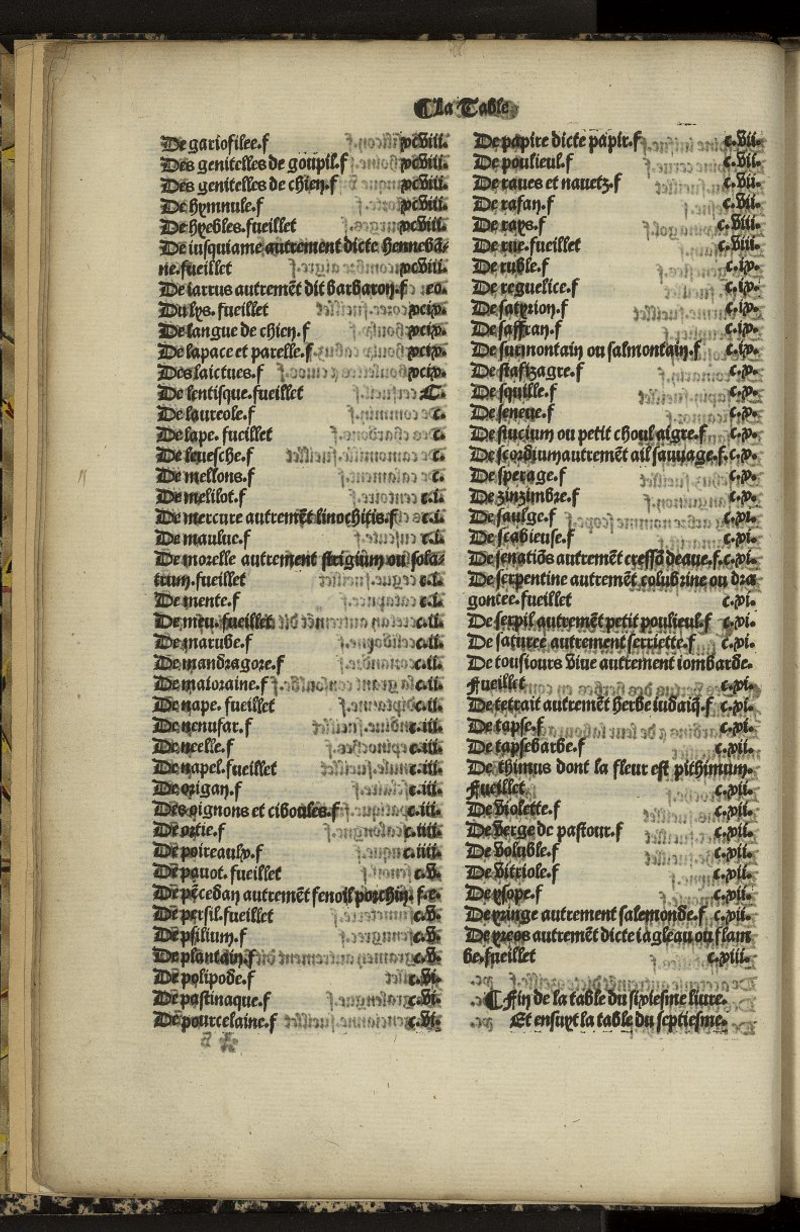 ¶ La Table
De gariofilee.f xcviii.
Des genitelles de goupil.f xcviii.
Des genitelles de chien.f xcviii.
De hymnule.f xcviii.
De hyebles.fueillet xcviii.
De iusquiame autrement dicte henneba/
ne.fueillet xcviii.
De iarrus autremẽt dit barbaron.f
Du lys. fueillet xcix.
De langue de chien.f xcix.
De lapace et parelle.f. xcix.
Des laictues.f xcix.
De lentisque.fueillet C.
De laureole.f c.
De lape. fueillet c.
De leuesche.f c.
De mellons.f c.
De melilot.f c.i.
De mercure autremẽt linochitis.f c.i.
De maulue.f c.i.
De morelle autrement strigium ou sola/
trum.fueillet c.i.
De mente.f c.i.
De meu.fueillet c.ii.
De marube.f c.ii.
De mandragore.f c.ii.
De maioraine.f c.ii.
De nape. fueillet c.ii.
De nenufar.f c.iii.
De neelle.f c.iii.
De napel.fueillet c.iii.
De origan.f c.iii.
Des oignons et ciboules.f c.iii.
De ortie.f c.iiii.
De poireaulx.f c.iiii.
De pauot. fueillet c.v.
De pẽcedan autremẽt fenoil porchin. f.c.
De persil.fueillet c.v.
De psilium.f c.v.
De plantain.f c.v.
De polipode.f c.vi.
De pastinaque.f c.vi.
De pourcelaine.f c.vi.
De papire dicte papir.f c.vii.
De poulieul.f c.vii.
De raues et nauetz.f c.vii.
De rafan.f c.vii.
De rays.f c.viii.
De rue.fueillet c.viii.
De ruble.f c.ix.
De reguelice.f c.ix.
De satyrion.f c.ix.
De saffran.f c.ix.
De surmontain ou salmontain.f c.ix.
De stafizagre.f c.x.
De squille.f c.x.
De seneue.f c.x.
De sticium ou petit choul aigre.f c.x.
De scordium autremẽt ail sauuage.f.c.x.
De sperage.f c.x.
De zinzimbre.f c.x.
De saulge.f c.xi.
De scabieuse.f c.xi.
De senatiõs autremẽt cressõ deaue.f.c.xi.
De serpentine autremẽt colubrine ou dra
gontee.fueillet c.xi.
De serpil autremẽt petit poulieul.f c.xi.
De saturee autrement serriette.f c.xi.
De tousiours viue autrement iombarde.
Fueillet c.xi.
De tetrait autremẽt herbe iudaiq̃.f c.xi.
De tapse.f c.xii.
De tapsebarbe.f c.xii.
De thimus dont la fleur est pithimum.
Fueillet c.xii.
De violette.f c.xii.
De verge de pastour.f c.xii.
De voluble.f c.xii.
De vitriole.f c.xii.
De ysope.f c.xii.
De yringe autrement salemonde.f c.xii.
De yreos autremẽt dicte iagleau ou flam
be.fueillet c.xiii.
¶ Fin de la table du sixiesme liure.
Et ensuyt la table du septiesme.